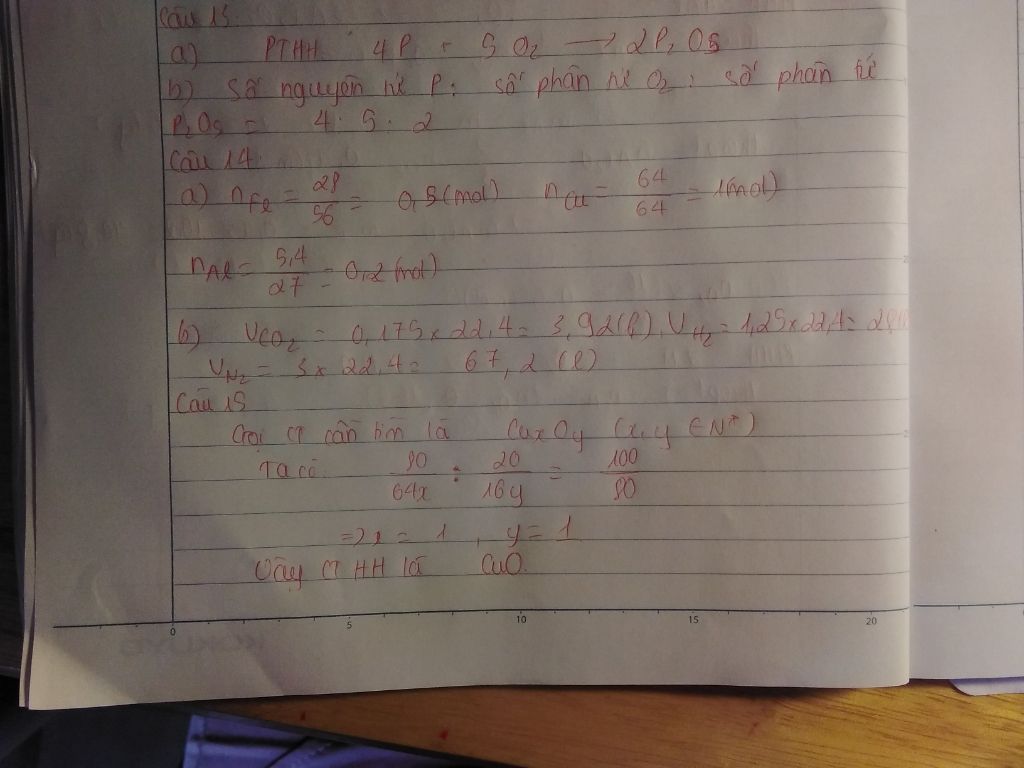 Câu 13:
a) PTHH 4P + 5O₂ ⟶ 2P₂O₅
b) Số nguyên tử P : số phân tử O₂ : số phân tử
P₂O₅ = 4 : 5 : 2
Câu 14:
a) nFe = 28/56 = 0,5 (mol) nCu = 64/64 = 1 (mol)
nAl = 5,4/27 = 0,2 (mol)
b) VCO₂ = 0,175 × 22,4 = 3,92 (l), VH₂ = 1,25 × 22,4 = 28
VN₂ = 3 × 22,4 = 67,2 (l)
Câu 15
Gọi CT cần tìm là CuxOy (x,y ∈ N*)
Ta có: 80/64x : 20/16y = 100/80
=> x = 1, y = 1
Vậy CTHH là CuO.
0 5 10 15 20